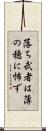 落ち武者は薄
の穂に怖ず